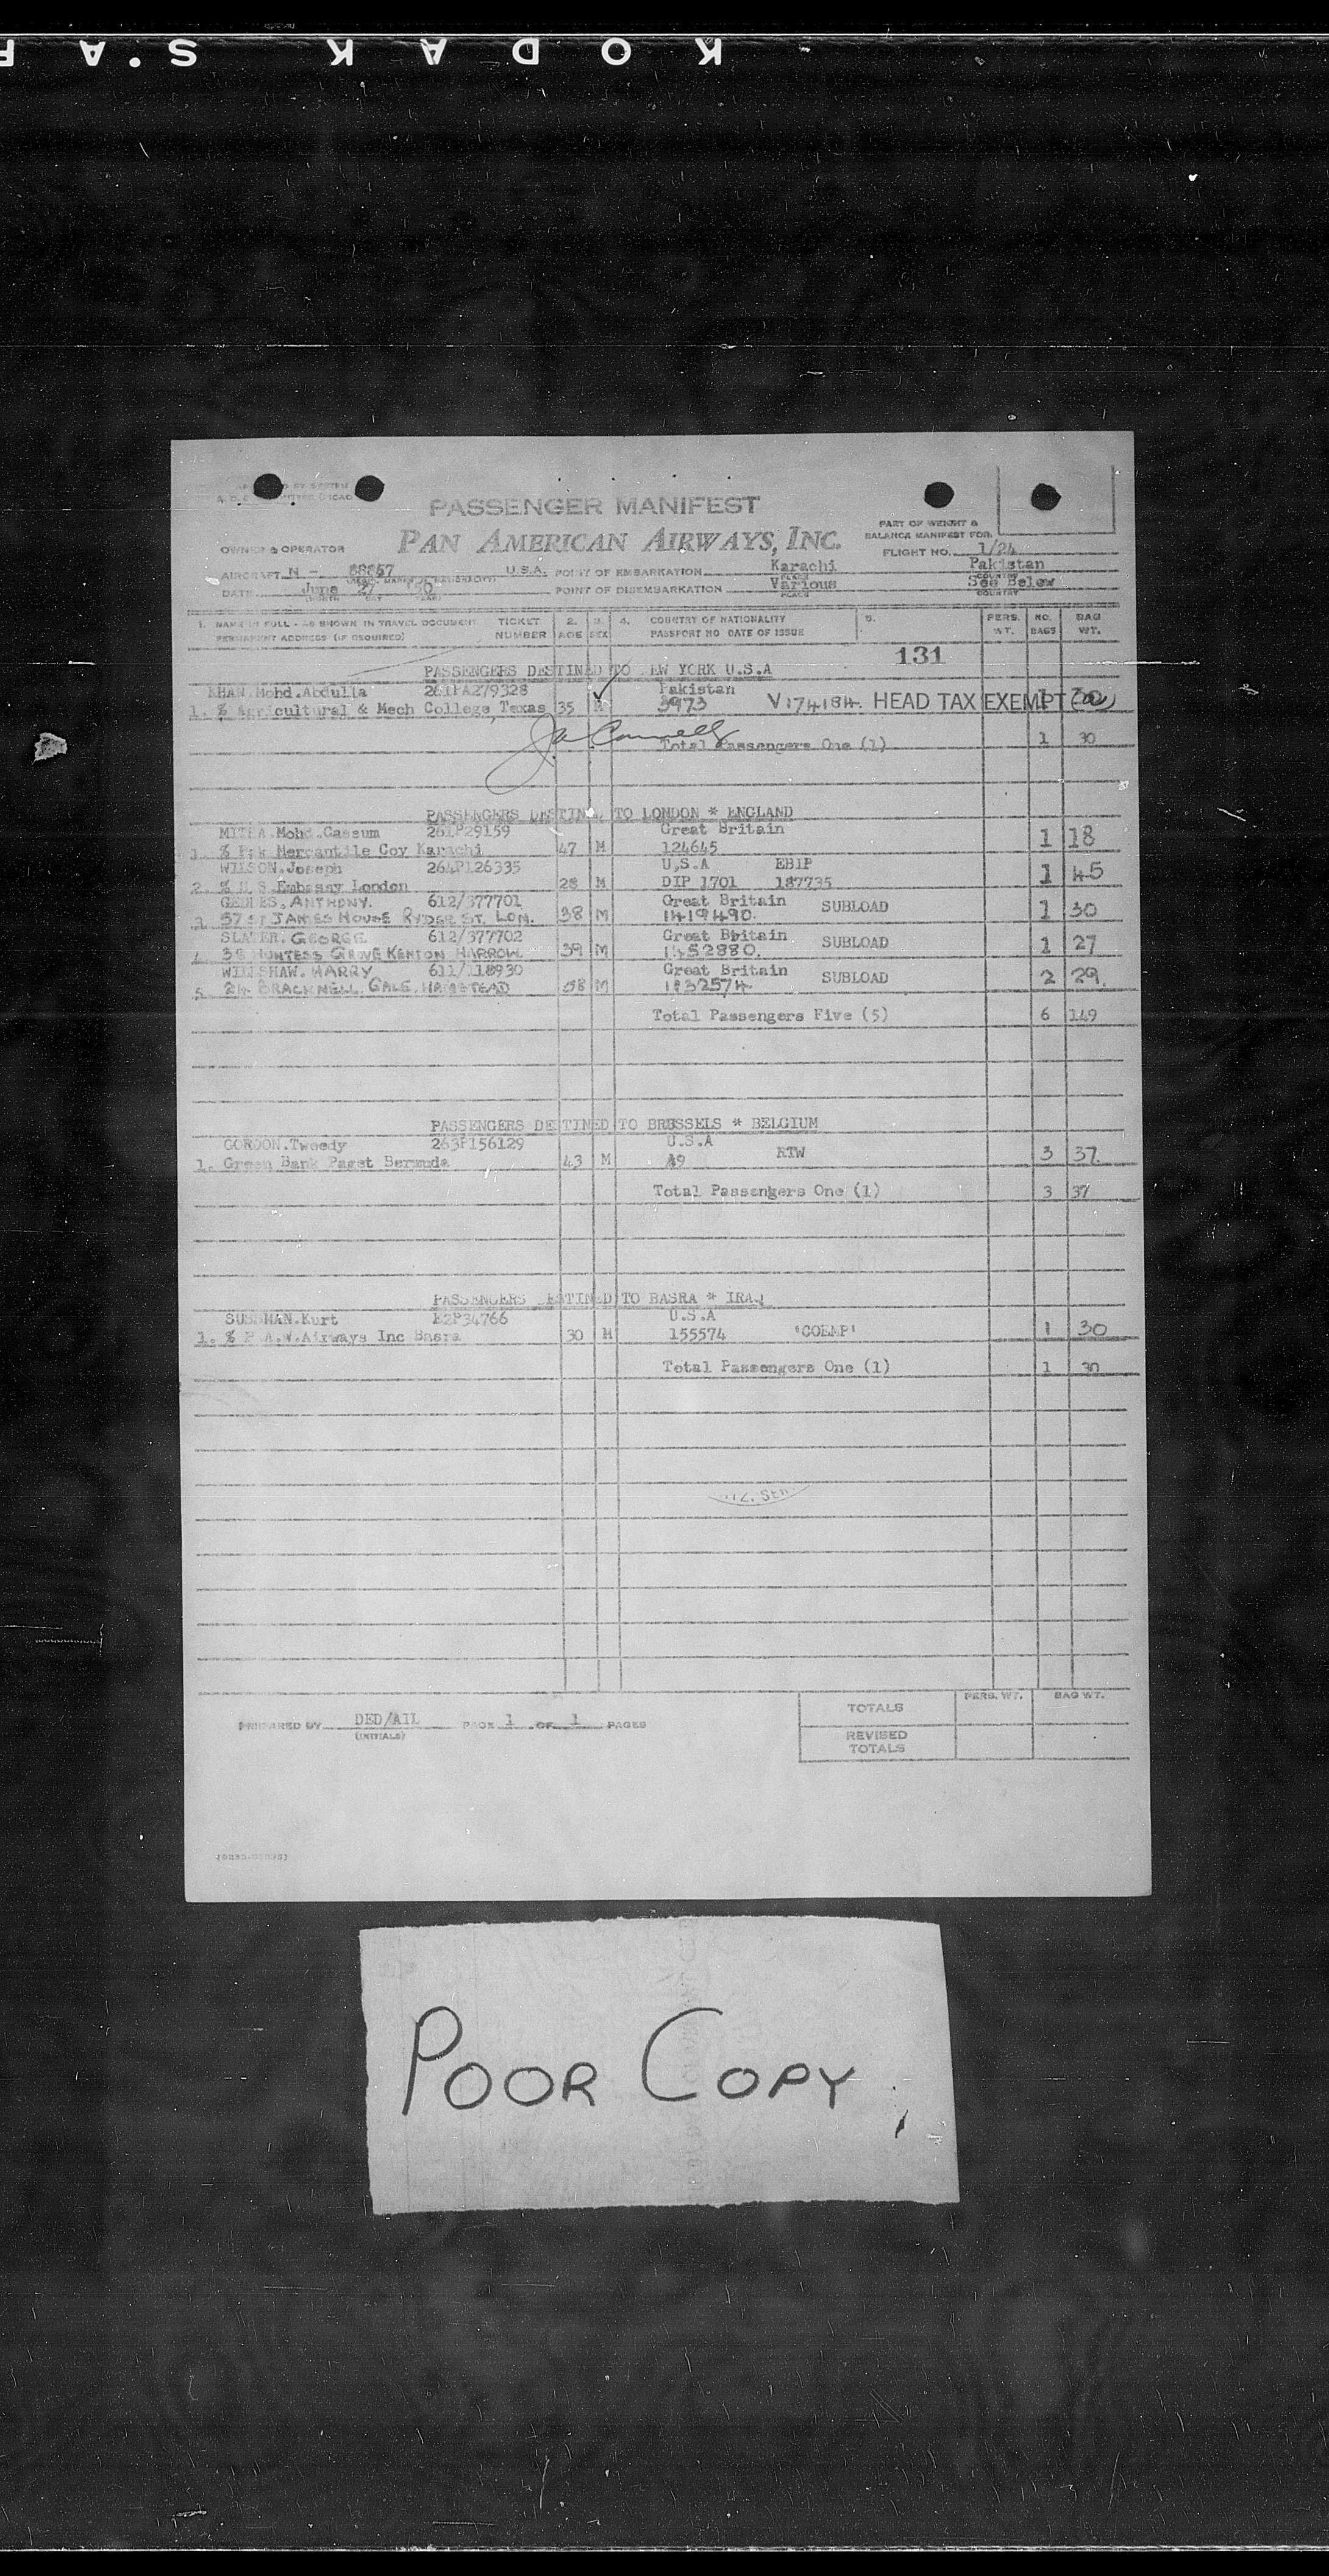 KODAK S.A F
PASSENGER MANIFEST
PAN AMERICAN AIRWAYS, INC.
PART OF WEIGHT &
BALANCE MANIFEST FOR
FLIGHT NO. 1/24
OWNER & OPERATOR
AIRCRAFT N - 88857 U.S.A. POINT OF EMBARKATION Karachi Pakistan
DATE June 27 '50 POINT OF DISEMBARKATION Various See Below
PLACE COUNTRY
1. NAME IN FULL - AS SHOWN IN TRAVEL DOCUMENT TICKET 2. 3. 4. COUNTRY OF NATIONALITY 5. PERS. NO. BAG
PERMANENT ADDRESS (IF REQUIRED) NUMBER AGE SEX PASSPORT NO DATE OF ISSUE WT. BAGS WT.
131
PASSENGERS DESTINED TO EW YORK U.S.A
KHAN.Mohd.Abdulla 261PA279328 Pakistan
1. % Agricultural & Mech College Texas 35 M 3973 V174184. HEAD TAX EXEMPT
Total Passengers One (1) 1 30
PASSENGERS DESTINED TO LONDON * ENGLAND
Mohd.Cassum 261P29159 Great Britain
1. % Pak Mercantile Coy Karachi 47 M 124645 1 18
WILSON.Joseph 264P126335 U,S.A EBIP
2. % U.S.Embassy London 28 M DIP 1701 187735 1 45
GEDDES. ANTHONY. 612/377701 Great Britain SUBLOAD
3. 57 ST JAMES HOUSE RYDER ST. LON. 38 M 1419490. 1 30
SLATER. GEORGE 612/377702 Great Bbitain SUBLOAD
4. 38 HUNTESS GROVE KENTON HARROW 39 M 1452880. 1 27
WILLSHAW. HARRY 611/118930 Great Britain SUBLOAD
5. 24 BRACKNELL GALE. HAMSTEAD M 2 29.
Total Passengers Five (5) 6 149
PASSENGERS DESTINED TO BRUSSELS * BELGIUM
GORDON.Tweedy 263P156129 U.S.A
1. Green Bank Paget Bermuda 43 M A9 RTW 3 37
Total Passengers One (1) 3 37
PASSENGERS DESTINED TO BASRA * IRAQ
SUSSMAN.Kurt E2P34766 U.S.A
1. % P.A.W.Airways Inc Basra 30 M 155574 'COEAP' 1 30
Total Passengers One (1) 1 30
PREPARED BY DED/AIL PAGE 1 OF 1 PAGES
(INITIALS)
PERS. WT. BAG WT.
TOTALS
REVISED
TOTALS
POOR COPY